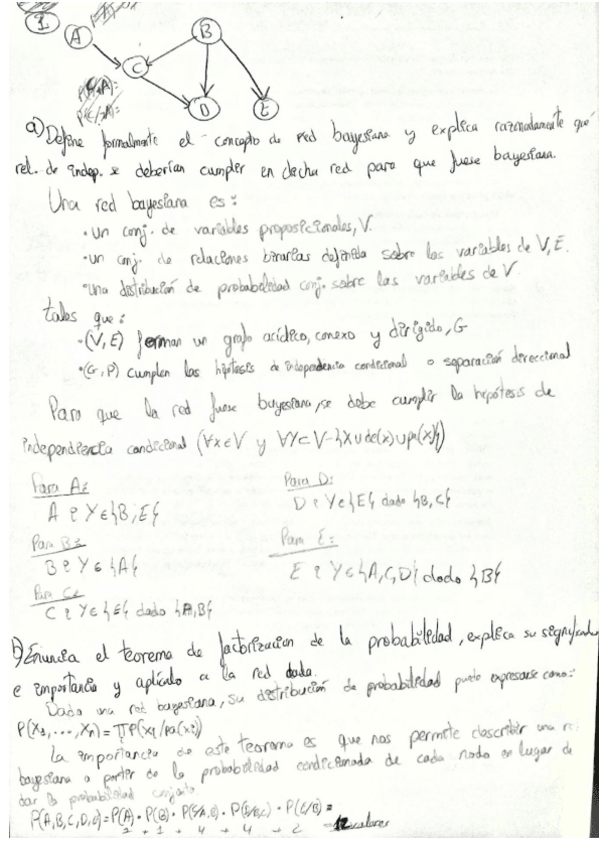 1
A
B
C
D
E
a) Define formalmente el concepto de red bayesiana y explica razonadamente qué
rel. de indep. se deberían cumplir en dicha red para que fuese bayesiana.
Una red bayesiana es:
• un conj. de variables proposicionales, V.
• un conj. de relaciones binarias definida sobre las variables de V, E.
• una distribución de probabilidad conj. sobre las variables de V.
tales que:
• (V, E) forman un grafo acíclico, conexo y dirigido, G
• (G, P) cumplen las hipótesis de independencia condicional o separación direccional
Para que la red fuese bayesiana, se debe cumplir la hipótesis de
independencia condicional (∀x∈V y ∀Y⊂V-{X∪de(x)∪pa(x)})
Para A:
A e Y∈{B, E}
Para B:
B e Y∈{A}
Para C:
C e Y∈{E} dado {A,B}
Para D:
D e Y∈{E} dado {B, C}
Para E:
E e Y∈{A,C,D} dado {B}
b) Enuncia el teorema de factorización de la probabilidad, explica su significado
e importancia y aplícalo a la red dada.
Dada una red bayesiana, su distribución de probabilidad puede expresarse como:
P(X1, ..., Xn) = ∏P(xi/pa(xi))
La importancia de este teorema es que nos permite describir una
bayesiana a partir de la probabilidad condicionada de cada nodo en lugar de
dar la probabilidad conjunta.
P(A,B,C,D,E) = P(A) · P(B) · P(C/A,B) · P(D/B,C) · P(E/B) =
1 + 1 + 4 + 4 + 2 = 12 valores